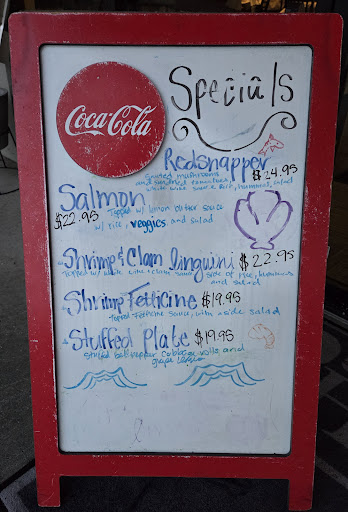 Coca-Cola
Specials
Redsnapper $24.95
Sauted mushrooms
and sundried tomatoes
white wine sauce Rice, hummus, salad
Salmon
$22.95 Topped w/ lemon butter sauce
w/ rice, veggies and salad
Shrimp & Clam linguini $22.95
Topped w/ white wine sauce side of rice, hummus
and salad
Shrimp Fetticine $19.95
Topped Fetticine sauce, with a side salad
Stuffed Plate $19.95
stuffed bell pepper cabbage rolls and
grape leaves